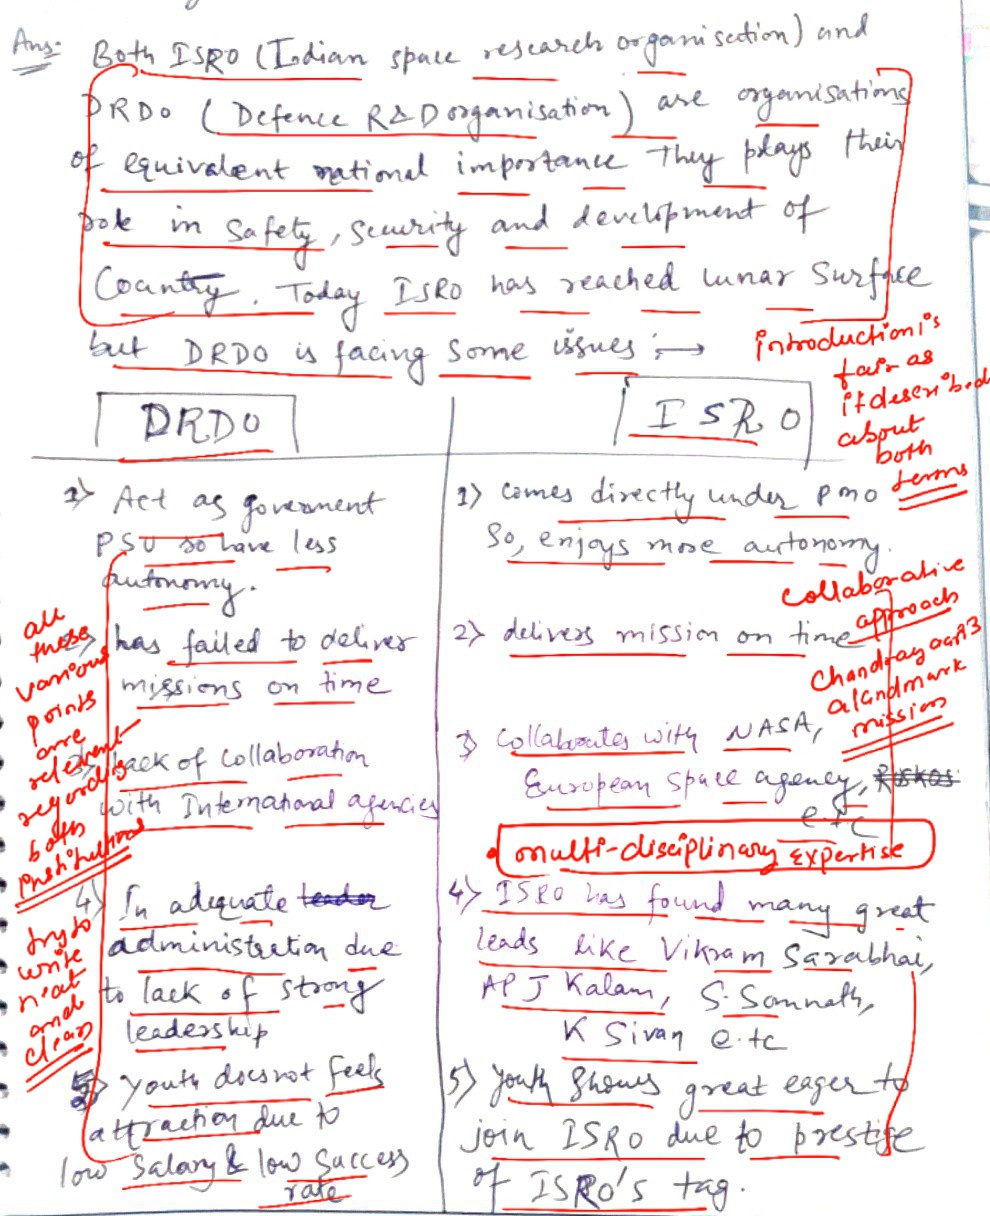 Ans:- Both ISRO (Indian space research organisation) and
DRDO (Defence R&D organisation) are organisations
of equivalent national importance They plays their
role in safety, security and development of
Country. Today ISRO has reached lunar Surface
but DRDO is facing some issues :→
introduction is
fair as
it described
about
both
terms
DRDO
1) Act as goverment
PSU so have less
autonomy.
2) has failed to deliver
missions on time
3) lack of collaboration
with International agencies
4) In adequate leader
administration due
to lack of strong
leadership
5) youth does not feels
attraction due to
low salary & low success
rate
all
these
various
points
are
relevant
regarding
both
institutional
try to
write
neat
and
clean
ISRO
1) comes directly under pmo
So, enjoys more autonomy.
2) delivers mission on time
collaborative
approach
chandrayaan3
a landmark
mission
3) collaborates with NASA,
European space agency, Roskos
e.tc
• multi-disciplinary expertise
4) ISRO has found many great
leads like Vikram Sarabhai,
AP J Kalam, S. Somnath,
K Sivan e.tc
5) youth shows great eager to
join ISRO due to prestige
of ISRO's tag.